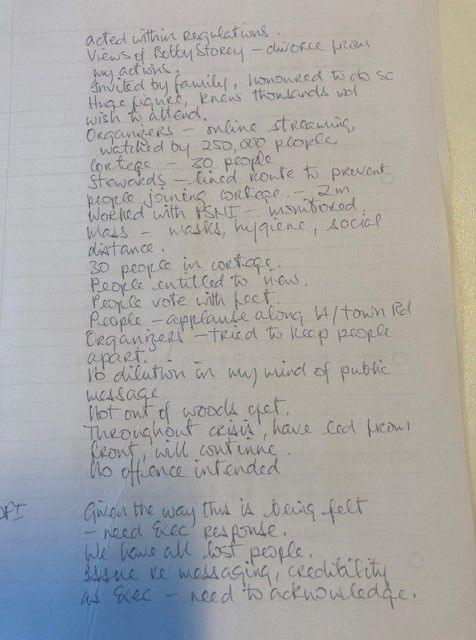 acted within regulations.
Views of Bobby Storey - divorce from
my actions.
Invited by family, honoured to do so
Huge figure, knew thousands wd
wish to attend.
Organizers - online streaming,
watched by 250,000 people.
Cortege - 30 people
Stewards - lined route to prevent
people joining cortege - 2m
Worked with PSNI - monitored.
Mass - masks, hygiene, social
distance.
30 people in cortege.
People entitled to views.
People vote with feet.
People - applause along W/town Rd
Organizers - tried to keep people
apart.
No dilution in my mind of public
message.
Not out of woods yet.
Throughout crisis, have led from
front, will continue.
No offence intended
Given the way this is being felt
- need Exec response.
We have all lost people.
Issue re messaging, credibility
as Exec - need to acknowledge.